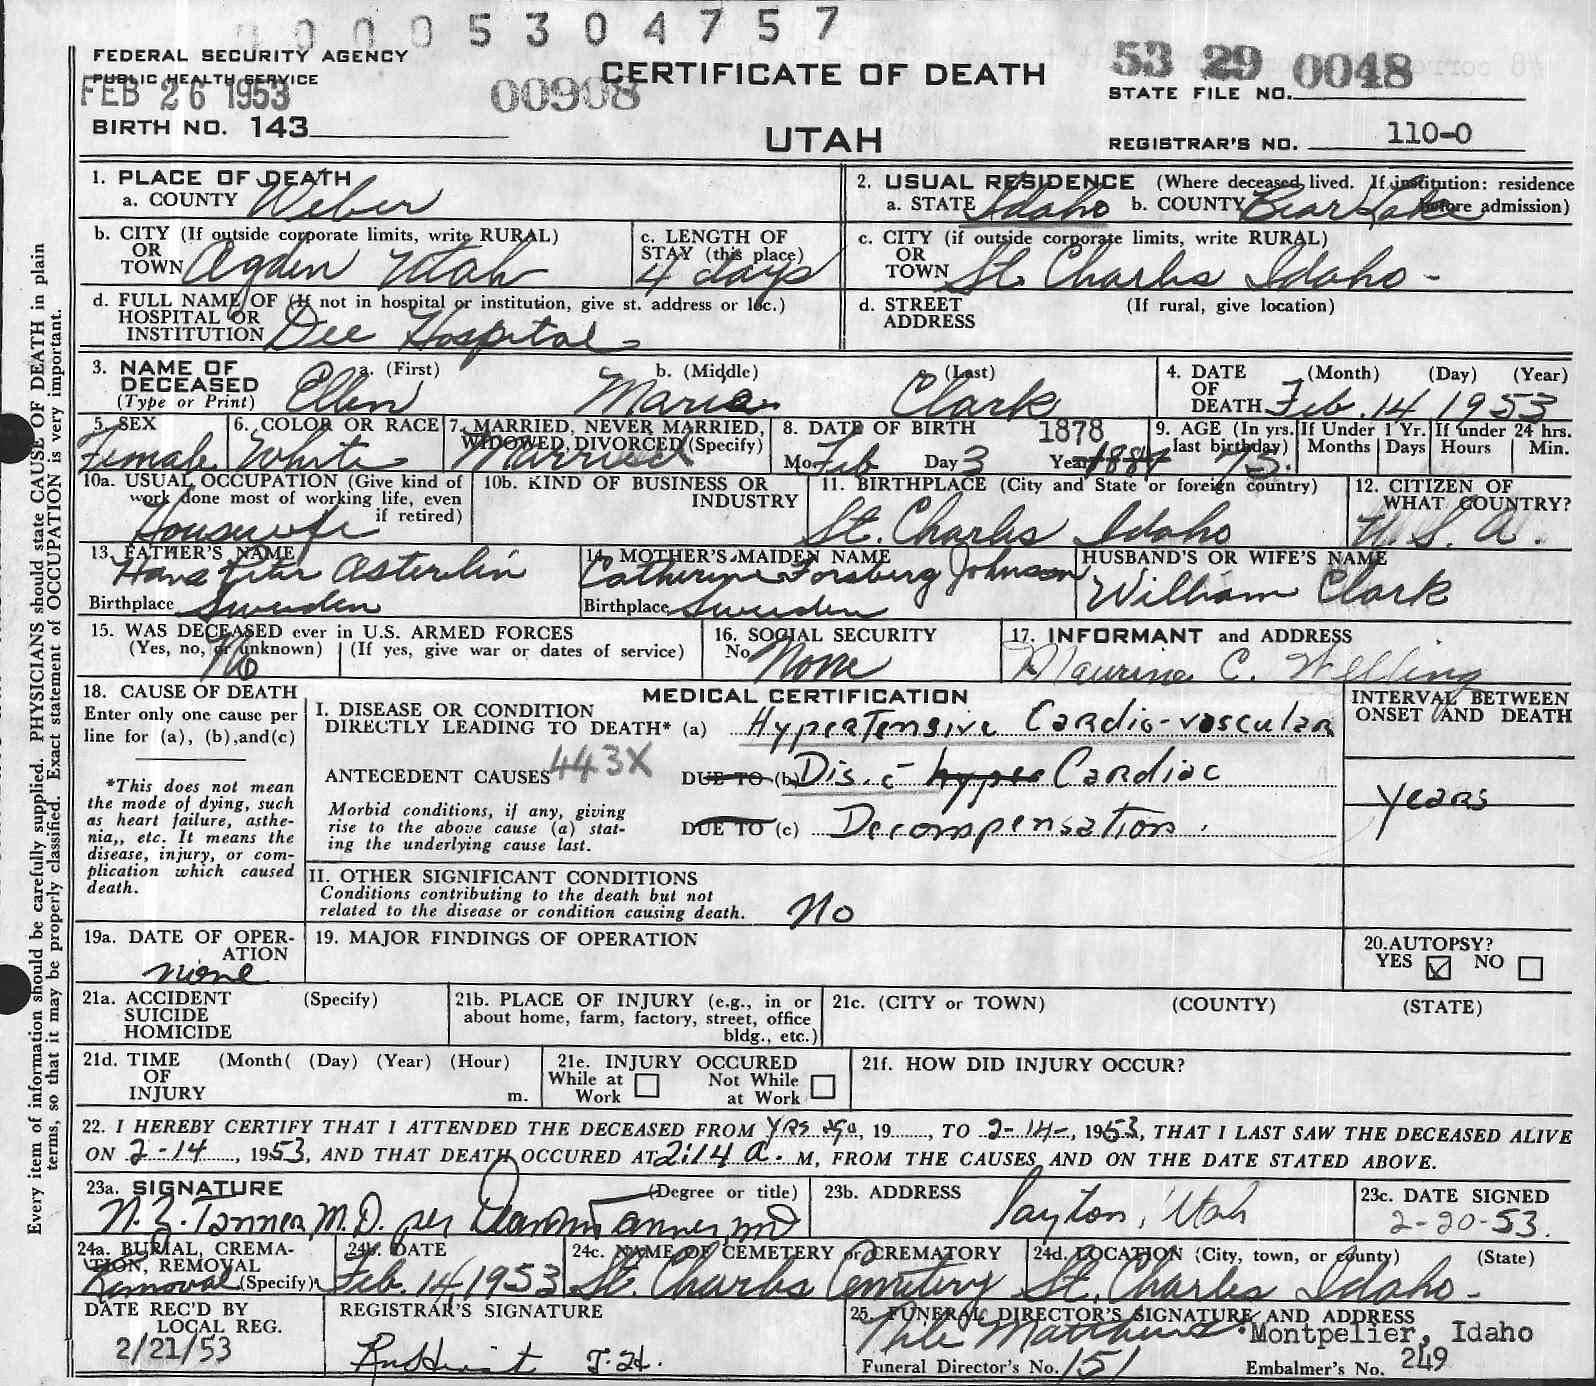 0 0 0 0 5 3 0 4 7 5 7
FEDERAL SECURITY AGENCY
PUBLIC HEALTH SERVICE
FEB 26 1953
00908
CERTIFICATE OF DEATH
UTAH
53 29 0048
STATE FILE NO.
BIRTH NO. 143
REGISTRAR'S NO. 110-0
Every item of information should be carefully supplied. PHYSICIANS should state CAUSE OF DEATH in plain
terms, so that it may be properly classified. Exact statement of OCCUPATION is very important.
1. PLACE OF DEATH
a. COUNTY Weber
2. USUAL RESIDENCE (Where deceased lived. If institution: residence
a. STATE Idaho b. COUNTY Bear Lake before admission)
b. CITY (If outside corporate limits, write RURAL)
OR
TOWN Ogden Utah
c. LENGTH OF
STAY (this place)
4 days
c. CITY (if outside corporate limits, write RURAL)
OR
TOWN St. Charles Idaho-
d. FULL NAME OF (If not in hospital or institution, give st. address or loc.)
HOSPITAL OR
INSTITUTION Dee Hospital
d. STREET (If rural, give location)
ADDRESS
3. NAME OF a. (First) b. (Middle) c. (Last)
DECEASED
(Type or Print) Ellen Maria Clark
4. DATE (Month) (Day) (Year)
OF
DEATH Feb. 14 1953
5. SEX
Female
6. COLOR OR RACE
White
7. MARRIED, NEVER MARRIED,
WIDOWED, DIVORCED (Specify)
Married
8. DATE OF BIRTH 1878
Mo. Feb Day 3 Year 1884
9. AGE (In yrs. last birthday) 75.
If Under 1 Yr.
Months Days
If under 24 hrs.
Hours Min.
10a. USUAL OCCUPATION (Give kind of
work done most of working life, even
if retired)
Housewife
10b. KIND OF BUSINESS OR
INDUSTRY
11. BIRTHPLACE (City and State or foreign country)
St. Charles Idaho
12. CITIZEN OF
WHAT COUNTRY?
U.S.A.
13. FATHER'S NAME
Hans Peter Asterlin
Birthplace Sweden
14. MOTHER'S MAIDEN NAME
Catherine Forsberg Johnson
Birthplace Sweden
HUSBAND'S OR WIFE'S NAME
William Clark
15. WAS DECEASED ever in U.S. ARMED FORCES
(Yes, no, or unknown) (If yes, give war or dates of service)
No
16. SOCIAL SECURITY
No. None
17. INFORMANT and ADDRESS
Maurine C. Welling
18. CAUSE OF DEATH
Enter only one cause per
line for (a), (b),and(c)
*This does not mean
the mode of dying, such
as heart failure, asthe-
nia,, etc. It means the
disease, injury, or com-
plication which caused
death.
MEDICAL CERTIFICATION
I. DISEASE OR CONDITION
DIRECTLY LEADING TO DEATH* (a) Hypertensive Cardio-vascular
ANTECEDENT CAUSES 443X DUE TO (b) Dis. c̄ hyper Cardiac
Morbid conditions, if any, giving
rise to the above cause (a) stat-
ing the underlying cause last.
DUE TO (c) Decompensation.
INTERVAL BETWEEN
ONSET AND DEATH
Years
II. OTHER SIGNIFICANT CONDITIONS
Conditions contributing to the death but not
related to the disease or condition causing death. No
19a. DATE OF OPER-
ATION
none
19. MAJOR FINDINGS OF OPERATION
20.AUTOPSY?
YES ☑ NO ☐
21a. ACCIDENT (Specify)
SUICIDE
HOMICIDE
21b. PLACE OF INJURY (e.g., in or
about home, farm, factory, street, office
bldg., etc.)
21c. (CITY or TOWN) (COUNTY) (STATE)
21d. TIME (Month( (Day) (Year) (Hour)
OF
INJURY m.
21e. INJURY OCCURED
While at Work ☐ Not While at Work ☐
21f. HOW DID INJURY OCCUR?
22. I HEREBY CERTIFY THAT I ATTENDED THE DECEASED FROM yrs ago, 19......, TO 2-14-, 1953, THAT I LAST SAW THE DECEASED ALIVE
ON 2-14, 1953, AND THAT DEATH OCCURED AT 2:14 a. M, FROM THE CAUSES AND ON THE DATE STATED ABOVE.
23a. SIGNATURE (Degree or title)
N. Z. Tanner M.D. per Tanner, md
23b. ADDRESS
Layton, Utah
23c. DATE SIGNED
2-20-53.
24a. BURIAL, CREMA-
TION, REMOVAL
(Specify)
Removal
24b. DATE
Feb. 14, 1953
24c. NAME OF CEMETERY or CREMATORY
St. Charles Cemetery
24d. LOCATION (City, town, or county) (State)
St. Charles Idaho-
DATE REC'D BY
LOCAL REG.
2/21/53
REGISTRAR'S SIGNATURE
25. FUNERAL DIRECTOR'S SIGNATURE AND ADDRESS
Matthews Montpelier, Idaho
Funeral Director's No. 151 Embalmer's No. 249